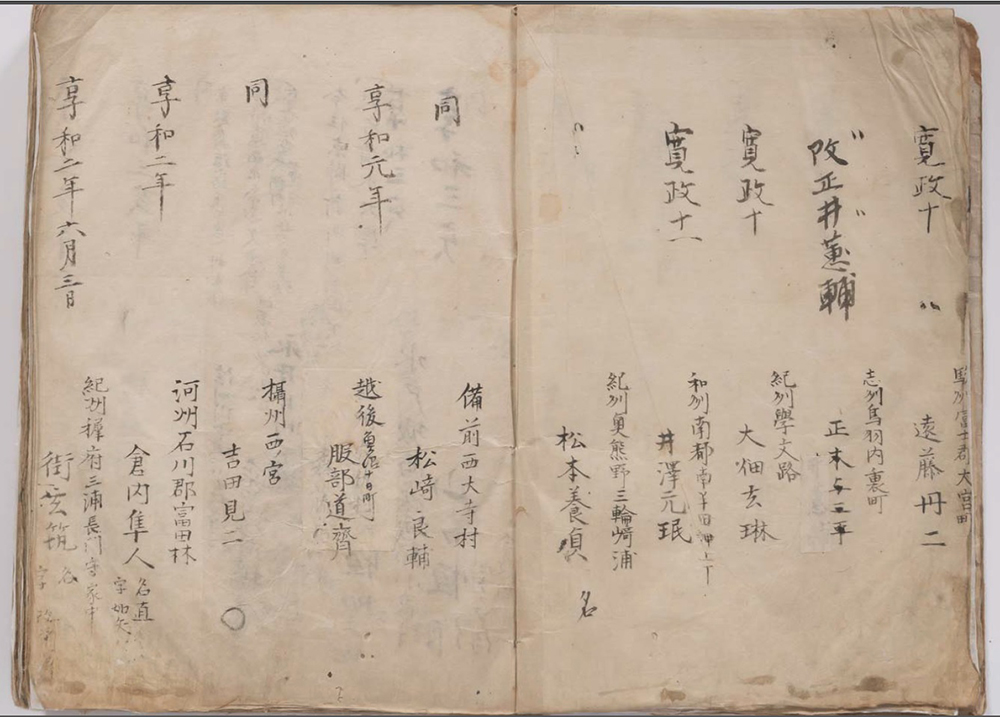 駿州富士郡大宮町
寛政十 〃 遠藤丹二
志州鳥羽内裏町
〃改正井〃蔥輔 正木与三平
紀州學文路
寛政十 大畑玄琳
和州南都南半田
寛政十一 井澤元珉
紀州奥熊野三輪崎浦
〃 松本養順 名
備前西大寺村
同 松崎良輔
越後魚沼十日町
享和元年 服部道齊
攝州西ノ宮
同 吉田見二 〇
河州石川郡富田林
享和二年 倉内隼人 名直 字
紀州 府三浦長門守家中
享和二年六月三日 街 筑 名 字